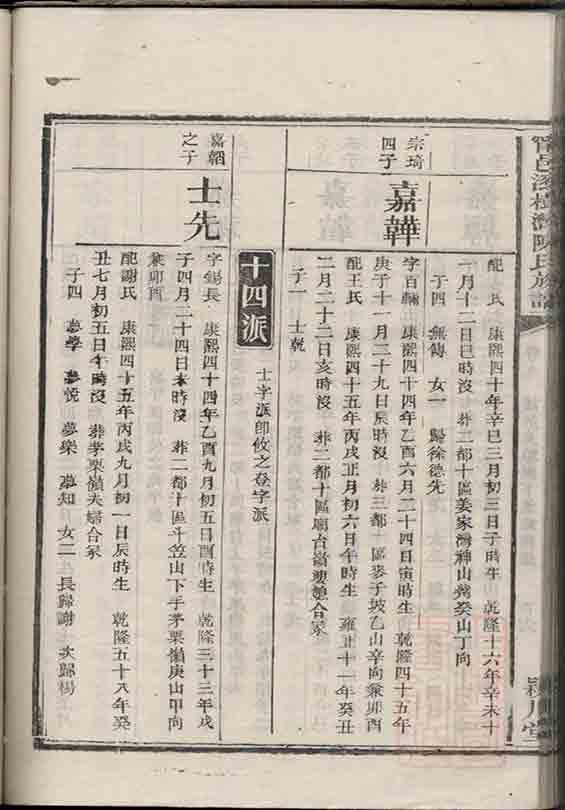 陳氏族譜
配 氏 康熙四十年辛巳三月初三日子時生 乾隆十六年辛未十
一月十二日巳時沒 葬二都十區姜家灣神山癸山丁向
子四 無傳 女一 歸徐德先
宗琦
四子
嘉鞾
字百輛 康熙四十四年乙酉六月二十四日寅時生 乾隆四十五年
庚子十一月二十九日辰時沒 葬三都一區麥子坡乙山辛向兼卯酉
配王氏 康熙四十五年丙戌正月初六日午時生 雍正十一年癸丑
二月二十二日亥時沒 葬二都十區廟台當 合冢
子一 士乾
十四派
士字派即攸之登字派
嘉韜
之子
士先
字錫長 康熙四十四年乙酉九月初五日酉時生 乾隆三十三年戊
子四月二十四日未時沒 葬二都十區斗笠山下手茅栗嶺庚山甲向
兼卯酉
配謝氏 康熙四十五年丙戌九月初一日辰時生 乾隆五十八年癸
丑七月初五日午時沒 葬茅栗嶺夫婦合冢
子四 夢學 夢悅 夢樂 夢知 女二 長歸謝 次歸楊